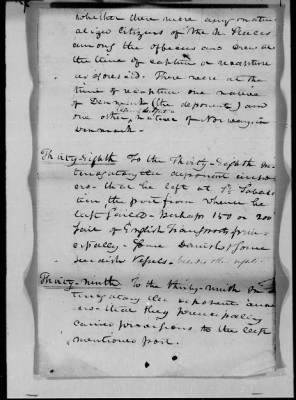 whether there were any natur
alized Citizens of the U. States
among the officers and crew at
the time of capture or recapture
as aforesaid. There were at the
time of recapture one native
of Denmark (the deponent) and
one other, native of Norway in
Denmark.
Thirty-Eighth To the Thirty-Eighth In
terrogatory the deponent answ
ers - that he left at St. Sebas
tian, the port from whence he
last sailed - perhaps 150 or 200
Sail of English Transports princ
ipally - Some Danish & Some
Swedish Vessels -
Thirty-ninth To the thirty-ninth In
terrogatory the deponent answ
ers - that they principally
carried provisions to the last
mentioned port.